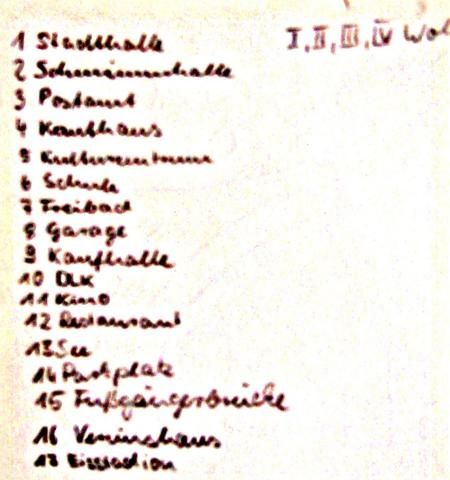 1 Stadthalle
I, II, III, IV
2 Schwimmhalle
3 Postamt
4 Kaufhaus
5 Kulturzentrum
6 Schule
7 Freibad
8 Garage
9 Kaufhalle
10 DLK
11 Kino
12 Restaurant
13 See
14 Parkplatz
15 Fußgängerbrücke
16
17 Eisstadion